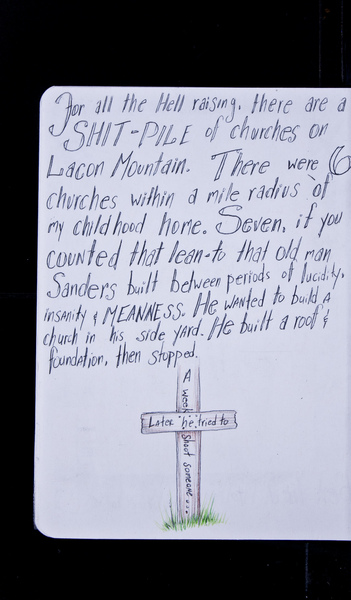 For all the Hell raising, there are a
SHIT-PILE of churches on
Lacon Mountain. There were 6
churches within a mile radius of
my childhood home. Seven, if you
counted that lean-to that old man
Sanders built between periods of lucidity,
insanity & MEANNESS. He wanted to build a
church in his side yard. He built a roof &
foundation, then stopped.
A week
Later he tried to
shoot someone...